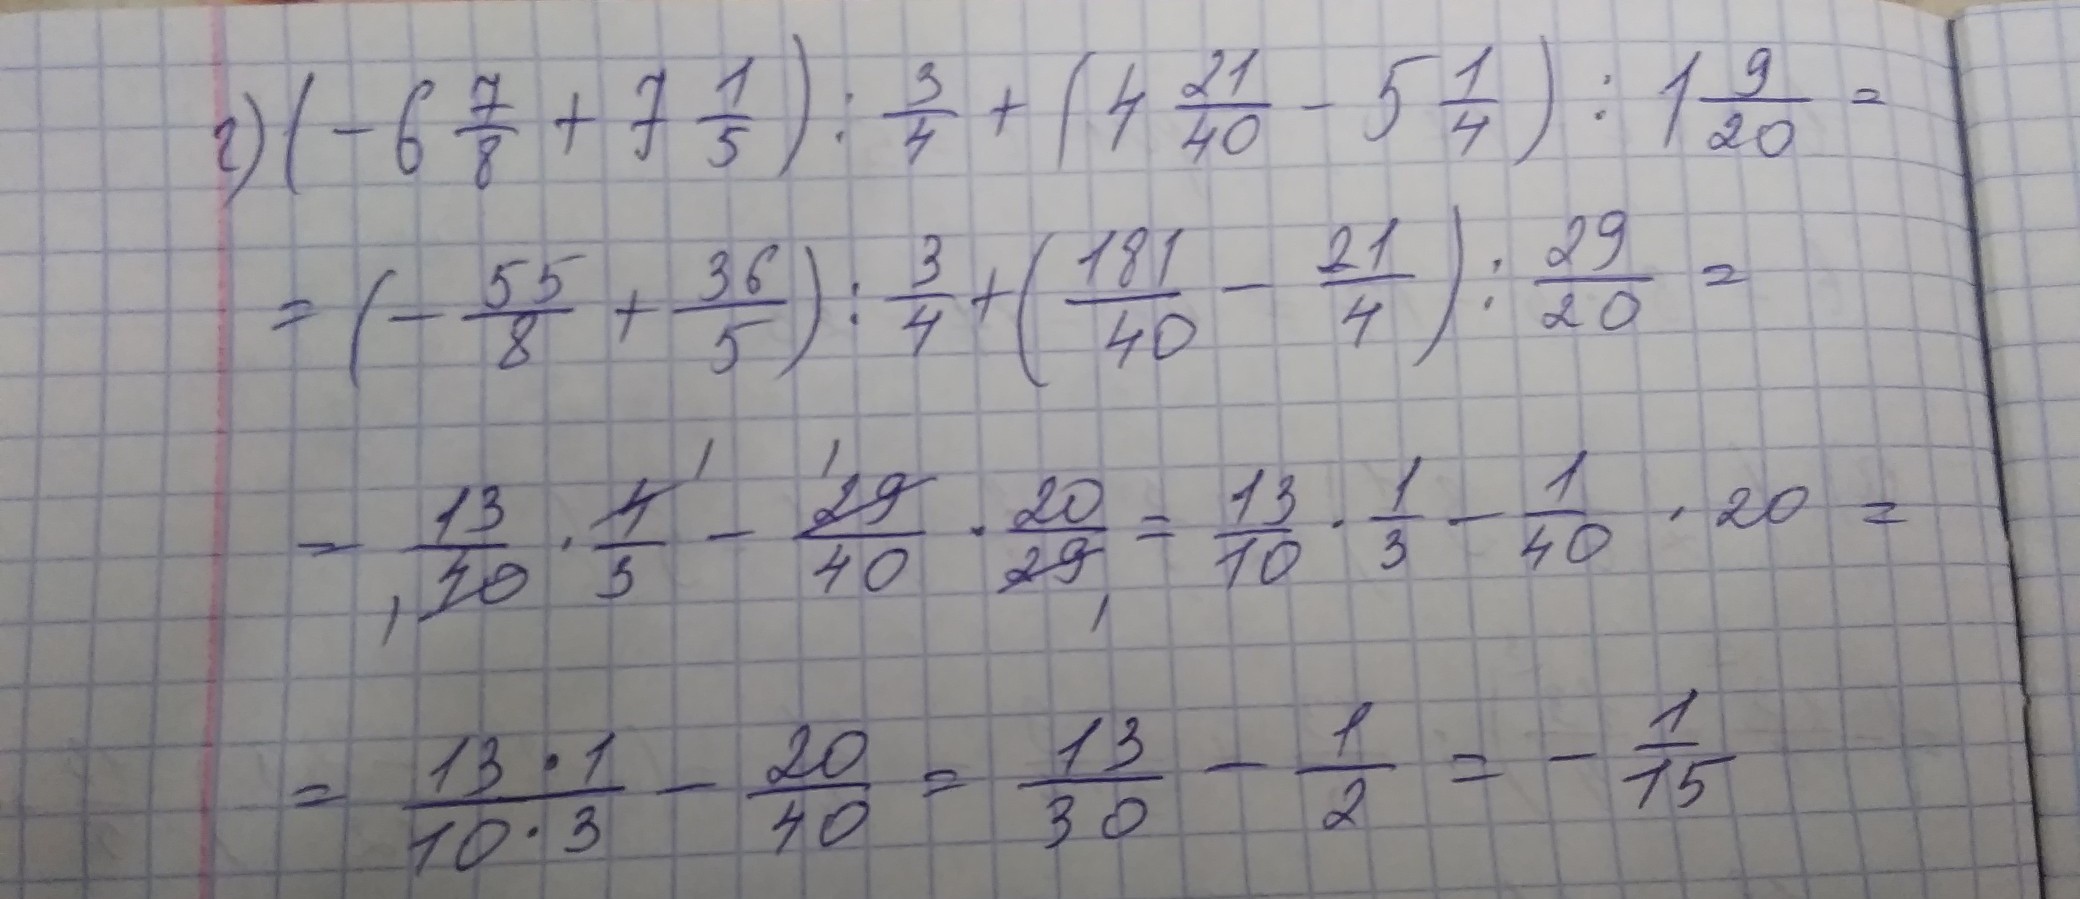 г) (-6 7/8 + 7 1/5) : 3/4 + (4 21/40 - 5 1/4) : 1 9/20 =
= (-55/8 + 36/5) : 3/4 + (181/40 - 21/4) : 29/20 =
= 13/40 · 4/3 - 29/40 · 20/29 = 13/10 · 1/3 - 1/40 · 20 =
= 13·1/10·3 - 20/40 = 13/30 - 1/2 = -1/15